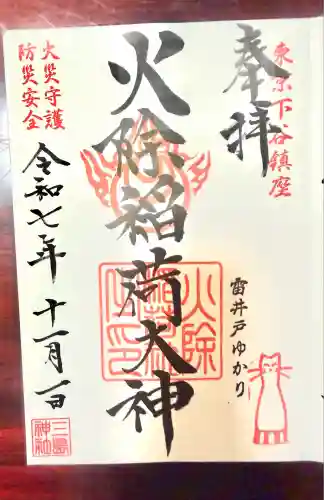 東京下谷鎮座
奉拝
雷井戸ゆかり
火除稲荷大神
火除稲荷社印
火災守護
防災安全
令和七年十一月一日
三島神社